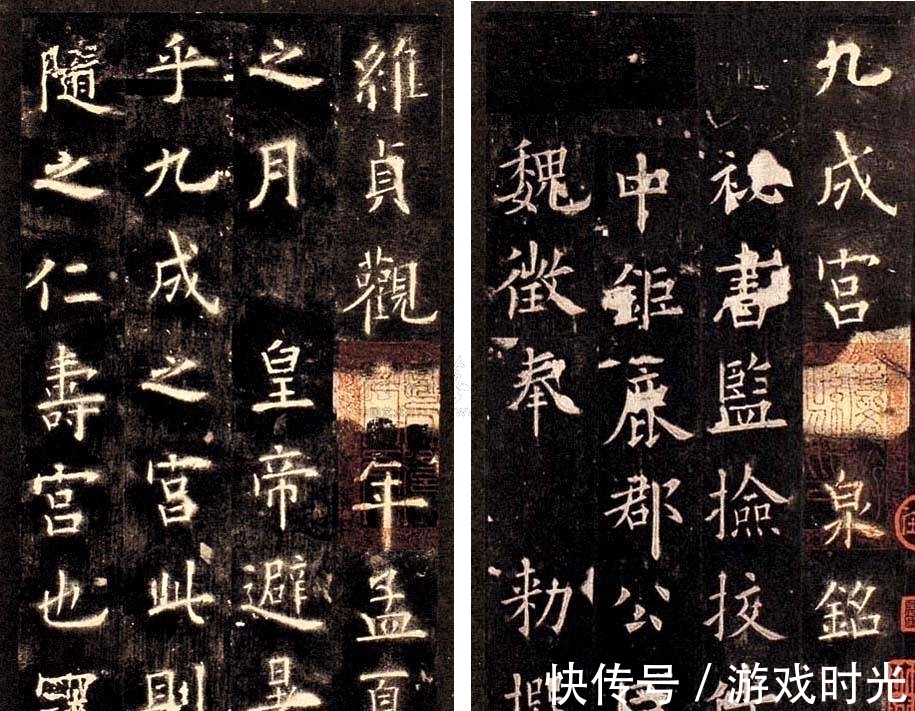 九成宮泉銘
秘書監撿挍
中鉅鹿郡公
魏徵奉勑撰
維貞觀年孟夏
之月皇帝避暑
乎九成之宮此則
隨之仁壽宮也冠
快传号 / 游戏时光